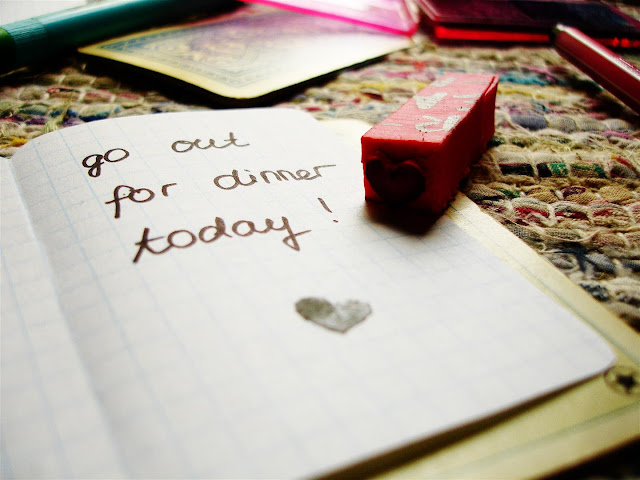 go out
for dinner
today!